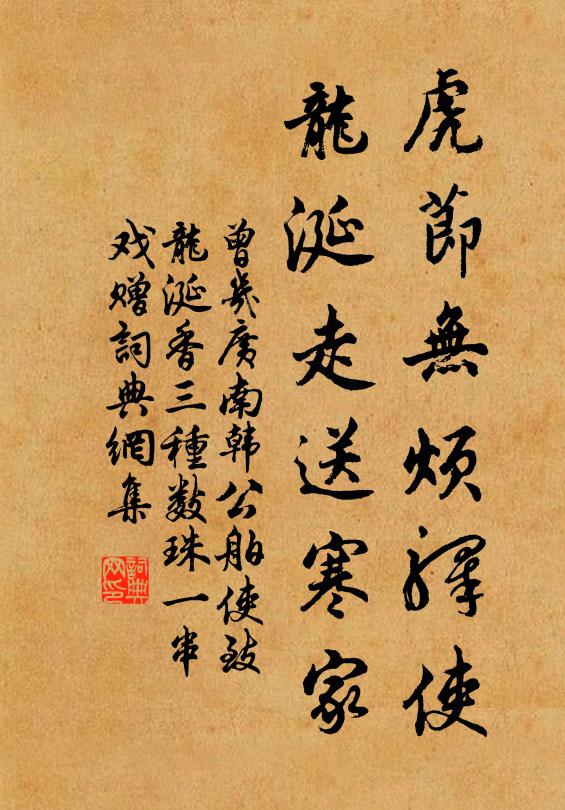 虎節無煩驛使
龍涎走送寒家
曾幾廣南韩公舶使致
龍涎香三種数珠一串
戏赠詞典網集
詞典
网印